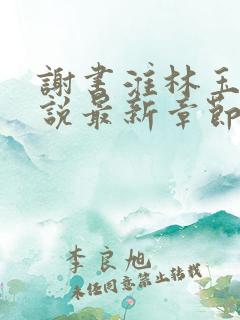 謝書淮林玉
說最新章節
李良旭
未經同意禁止轉載